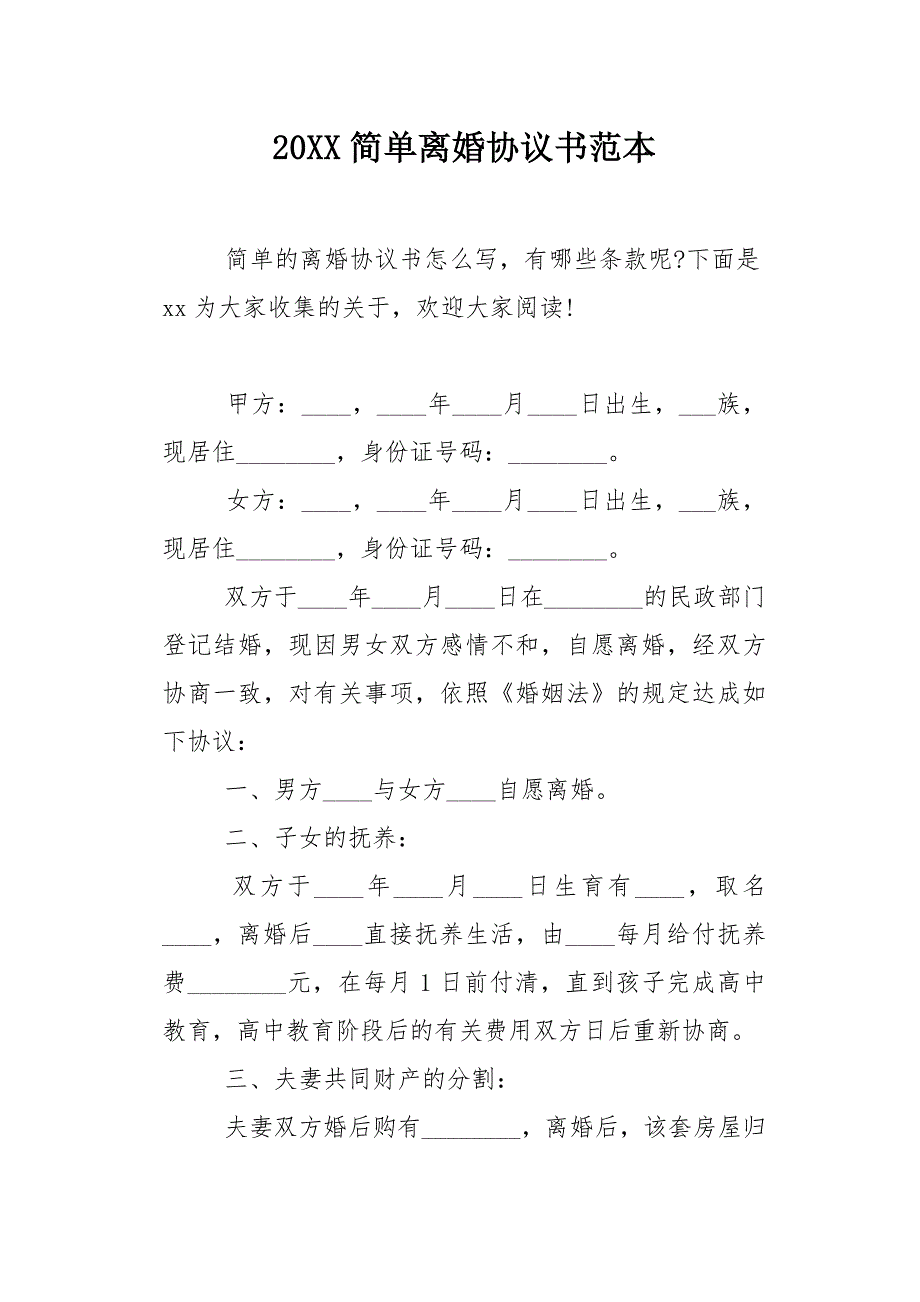 20XX简单离婚协议书范本
简单的离婚协议书怎么写，有哪些条款呢?下面是
xx为大家收集的关于，欢迎大家阅读!
甲方：____，____年____月____日出生，___族，
现居住________，身份证号码：________。
女方：____，____年____月____日出生，___族，
现居住________，身份证号码：________。
双方于____年____月____日在________的民政部门
登记结婚，现因男女双方感情不和，自愿离婚，经双方
协商一致，对有关事项，依照《婚姻法》的规定达成如
下协议：
一、男方____与女方____自愿离婚。
二、子女的抚养：
双方于____年____月____日生育有____，取名
____，离婚后____直接抚养生活，由____每月给付抚养
费________元，在每月1日前付清，直到孩子完成高中
教育，高中教育阶段后的有关费用双方日后重新协商。
三、夫妻共同财产的分割：
夫妻双方婚后购有________，离婚后，该套房屋归